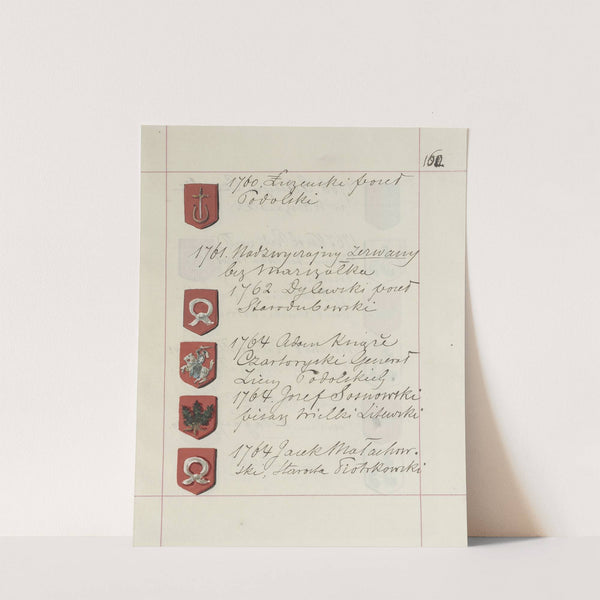 160
1760. Łuzewski poseł
Podolski
1761. Nadzwyczajny Zerwany
bez Marszałka
1762. Dylewski poseł
Starodubowski
1764 Adam Książe
Czartoryski Generał
Ziem Podolskich
1764. Josef Sosnowski
pisarz wielki Litewski
1764 Jacek Małachow-
ski, Starosta Piotrkowski